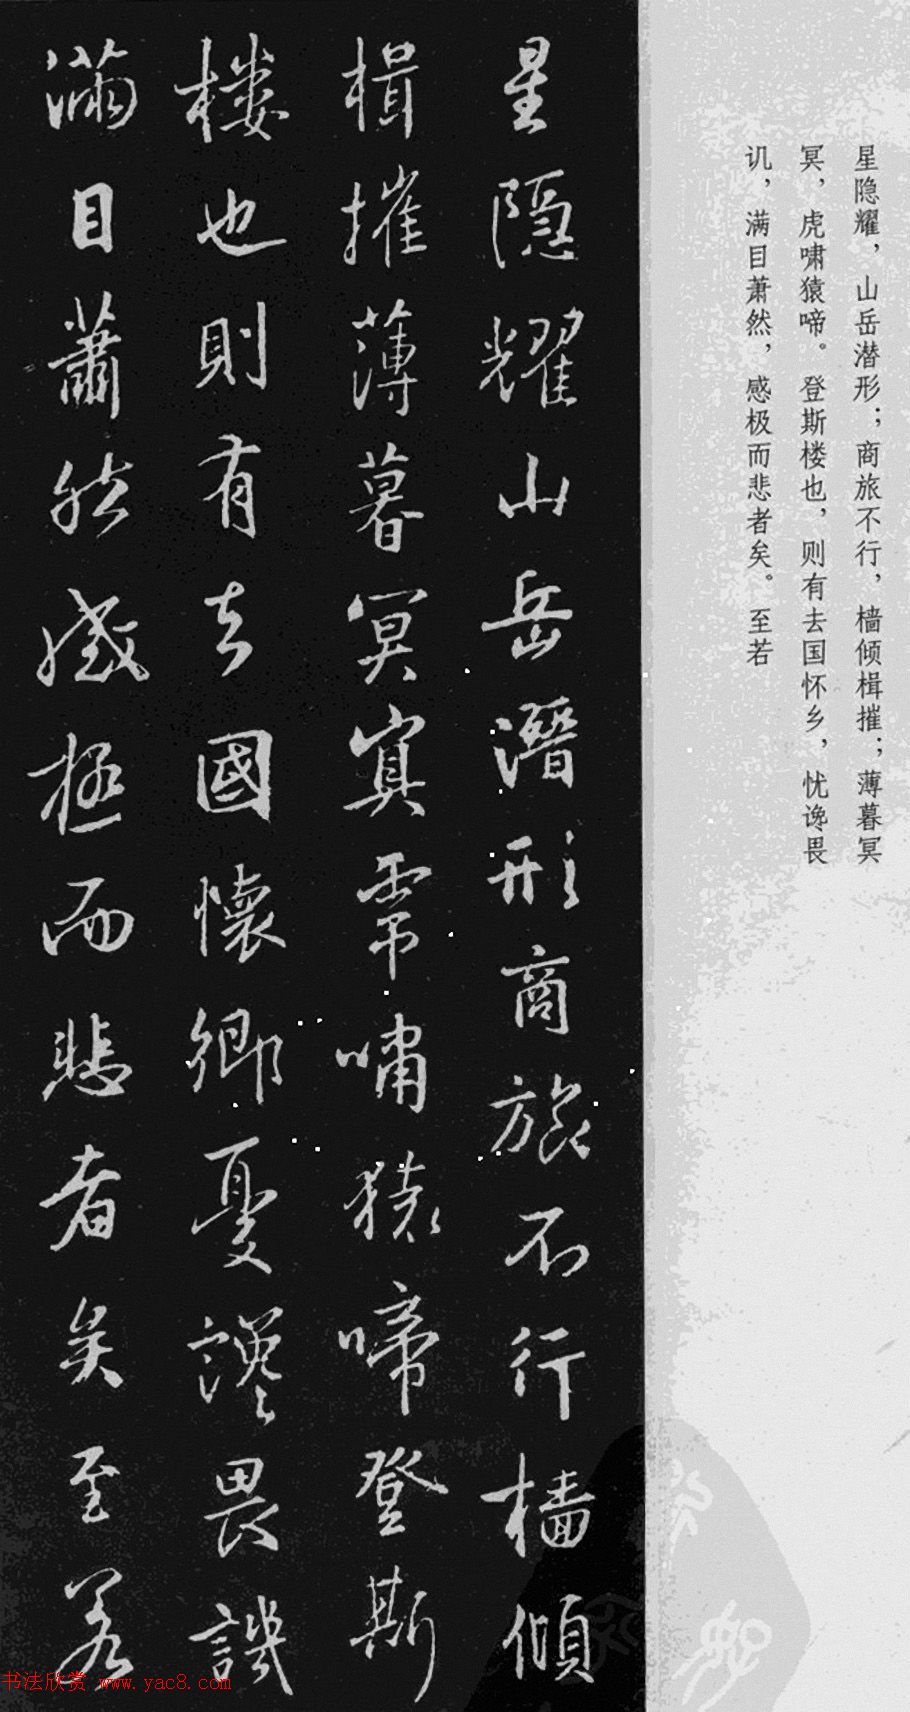 星隐耀，山岳潜形；商旅不行，樯倾楫摧；薄暮冥
冥，虎啸猿啼。登斯楼也，则有去国怀乡，忧谗畏
讥，满目萧然，感极而悲者矣。至若
星隱耀山岳潛形商旅不行檣傾
楫摧薄暮冥冥虎嘯猿啼登斯
樓也則有去國懷鄉憂讒畏譏
滿目蕭然感極而悲者矣至若
书法欣赏 www.yac8.com